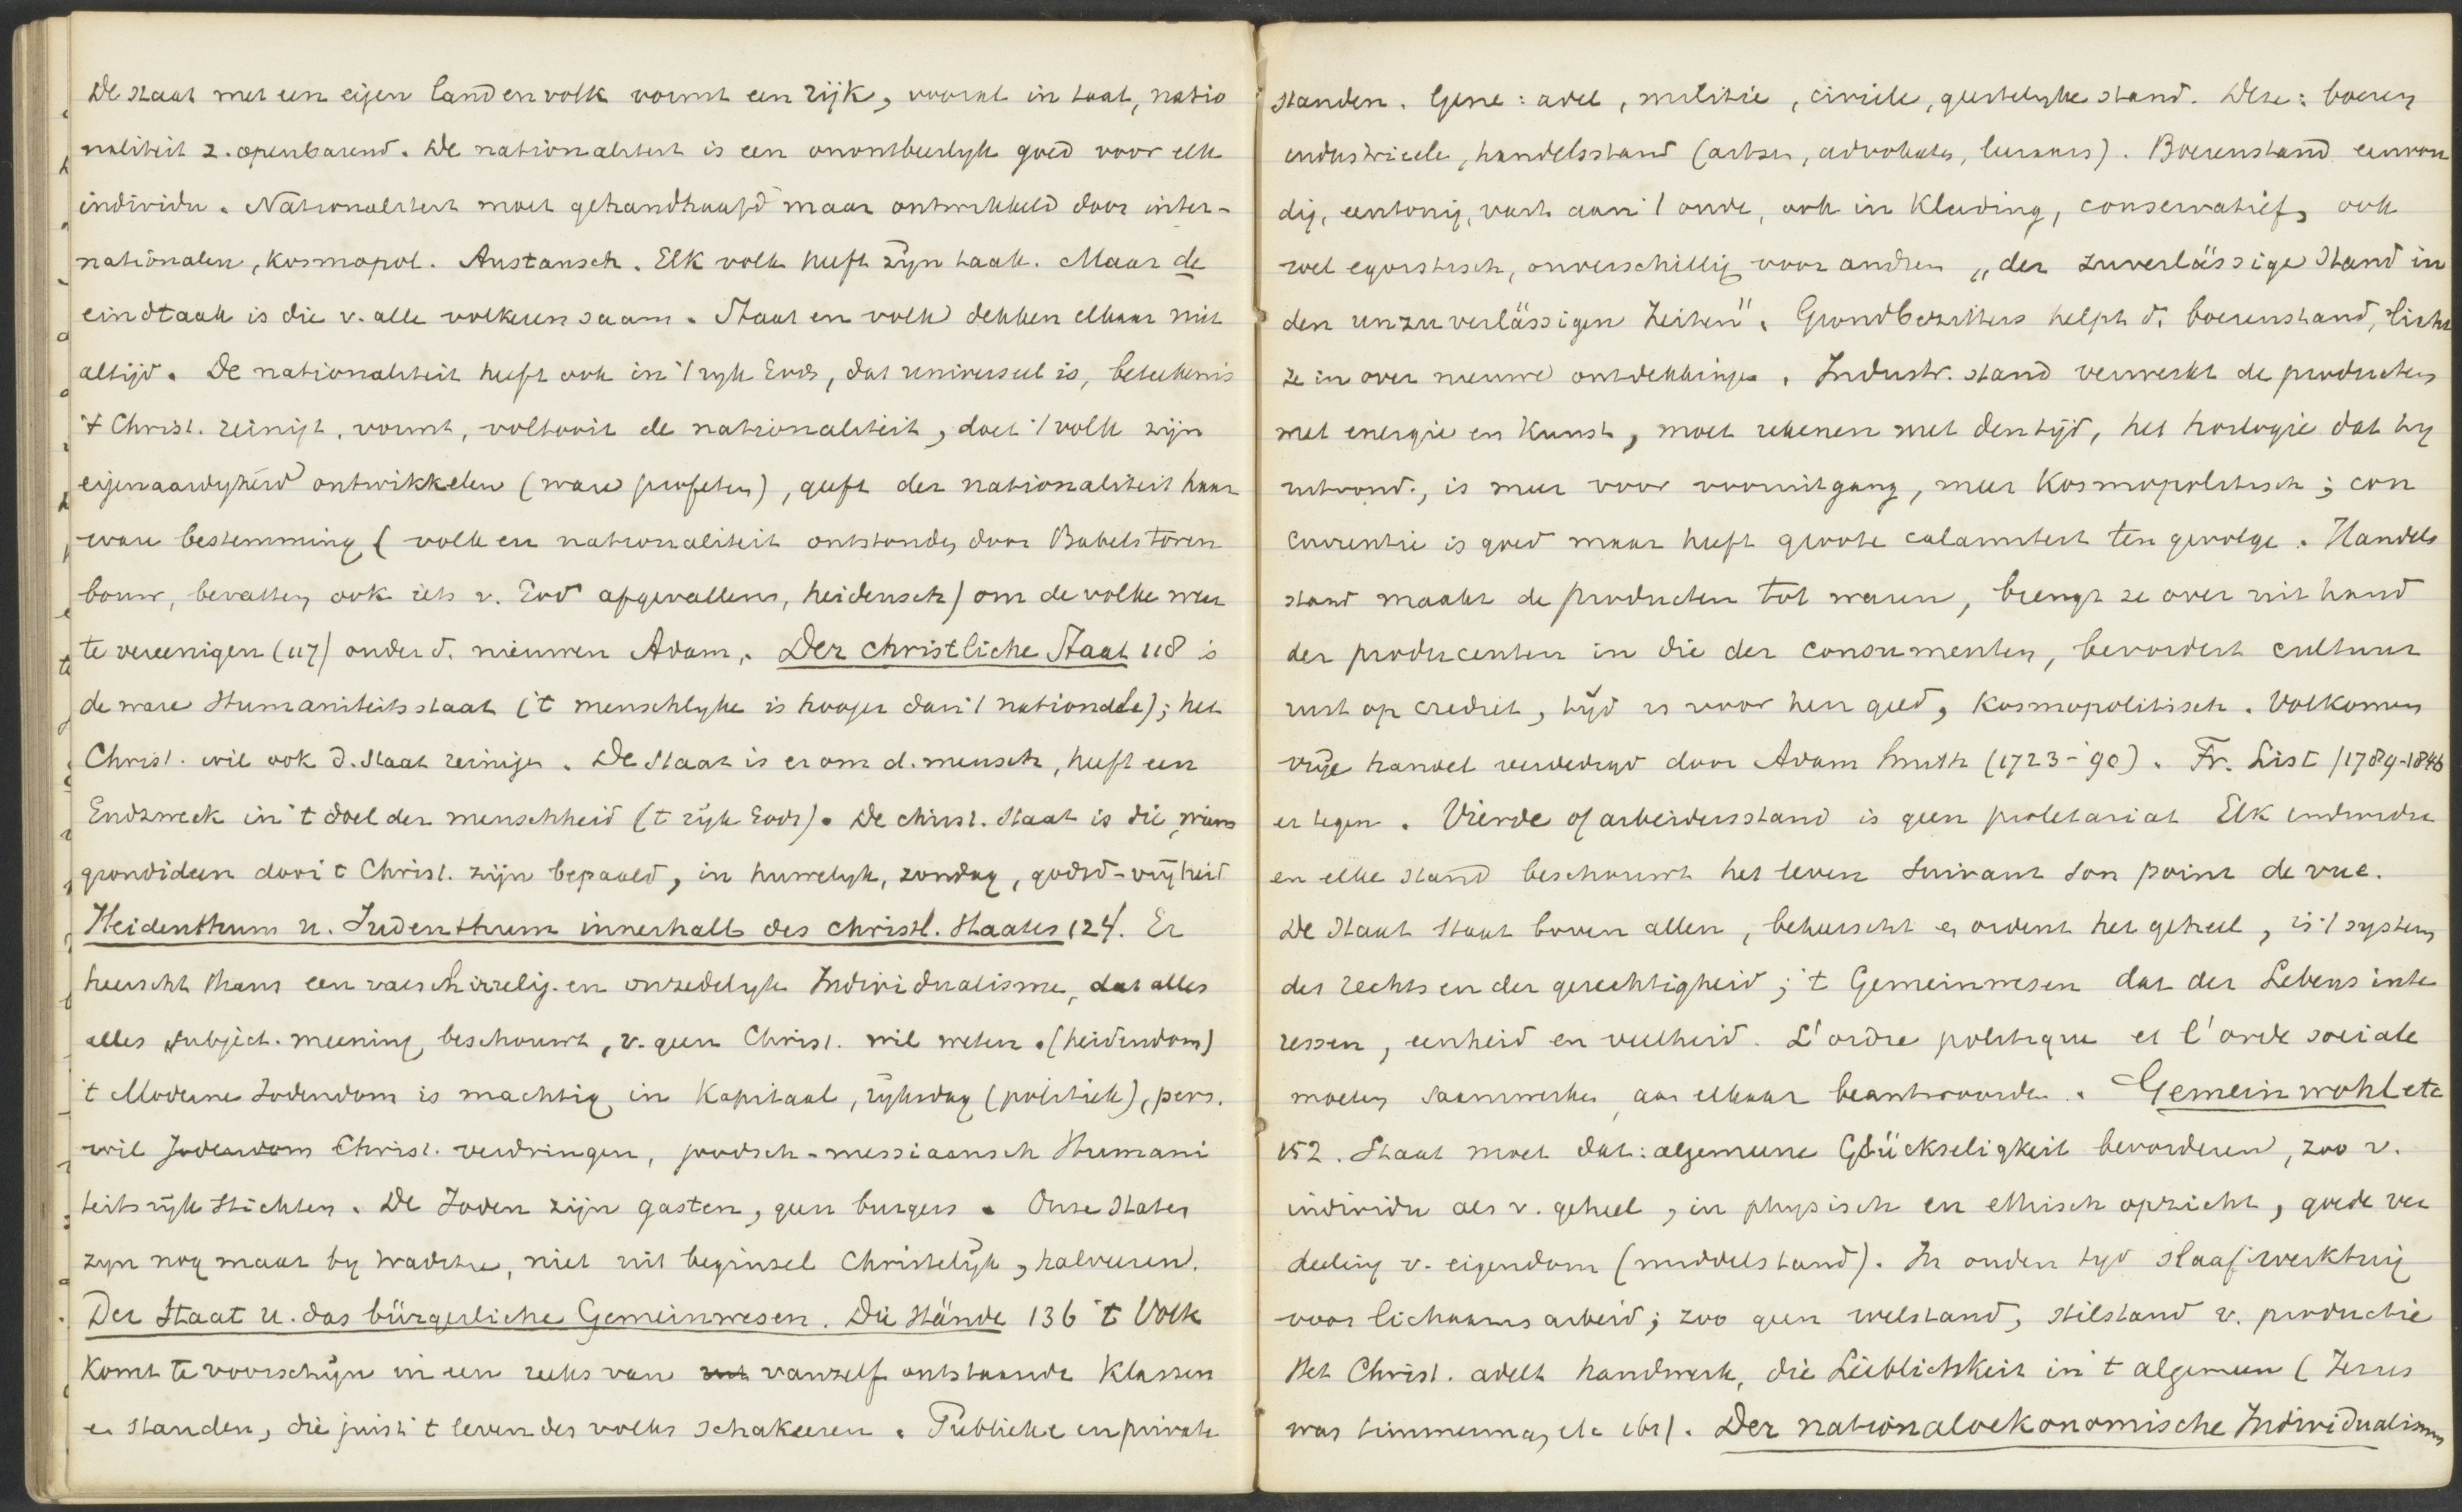 De staat met een eigen land en volk vormt een rijk, vooral in taal, natio
naliteit z. openbarend. De nationaliteit is een onontbeerlyk goed voor elk
individu. Nationaliteit moet gehandhaafd maar ontwikkeld door inter-
nationalen, kosmopol. Austausch. Elk volk heeft zijn taak. Maar de
eindtaak is die v. alle volkeren saam. Staat en volk dekken elkaar niet
altijd. De nationaliteit heeft ook in 't ryk Gods, dat universeel is, beteekenis
't Christ. reinigt, vormt, voltooit de nationaliteit, doet 't volk zijn
eigenaardigheid ontwikkelen (ware profeten), geeft der nationaliteit haar
ware bestemming (volk en nationaliteit ontstonden door Babels toren
bouw, bevatten ook iets v. God afgevallens, heidensch) om de volke weer
te vereenigen (117) onder d. nieuwen Adam. Der christliche Staat 118 is
de ware Humaniteitsstaat ('t menschlyke is hooger dan 't nationale); het
Christ. wil ook d. staat reinigen. De staat is er om d. mensch, heeft een
Endzweck in 't doel der menschheid ('t rijk Gods). De christ. staat is die, wiens
grondideen door 't Christ. zijn bepaald, in huwelyk, zondag, godsd-vrijheid
Heidenthum u. Judenthum innerhalb des christl. Staates 124. Er
heerscht thans een valsch-vrzelig. en onzedelyk Individualisme, dat alles
alles subject. meening beschouwt, v. geen Christ. wil weten. (heidendom)
't Moderne Jodendom is machtig in Kapitaal, rijksdag (politiek), pers.
wil Jodendom Christ. verdringen, joodsch-messiaansch Humani
teitsrijk stichten. De Joden zijn gasten, geen burgers. Onze staten
zyn nog maar by traditie, niet uit beginsel Christelijk, halveeren.
Der Staat u. das bürgerliche Gemeinwesen. Die Stände 136 't Volk
komt te voorschijn in een reeks van vanzelf ontstaande klassen
en standen, die juist 't leven des volks schakeeren. Publieke en private
standen. Gene: adel, militie, civiele, geestelyke stand. Deze: boeren
industrieele, handelsstand (artsen, advokaten, leeraars). Boerenstand eenvou
dig, eentonig, vast aan 't oude, ook in kleeding, conservatief, ook
wel egoistisch, onverschillig voor andren „der zuverlässige Stand in
den unzuverlässigen Zeiten". Grondbezitters helpt d. boerenstand, licht
ze in over nieuwe ontdekkingen. Industr. stand verwerkt de producten
met energie en kunst, moet rekenen met den tijd, het horlogie dat hy
uitvond, is meer voor vooruitgang, meer kosmopolitisch; con
currentie is goed maar heeft groote calamiteit ten gevolge. Handels
stand maakt de producten tot waren, brengt ze over uit hand
der producenten in die der consumenten, bevordert cultuur
rust op crediet, tijd is voor hen geld, kosmopolitisch. Volkomen
vrije handel verdedigd door Adam Smith (1723-'90). Fr. List (1789-1846
er tegen. Vierde of arbeidersstand is geen proletariat Elk individu
en elke stand beschouwt het leven suivant son point de vue.
De Staat staat boven allen, beheerscht en ordent het geheel, is 't system
des rechts en der gerechtigheid; 't Gemeinwesen dat der Lebens inte
ressen, eenheid en veelheid. L'ordre politique et l'orde sociale
moeten saamwerken, aan elkaar beantwoorden. Gemeinwohl etc
152. Staat moet dat: algemeene Glückseligkeit bevorderen, zoo v.
individu als v. geheel, in physisch en ethisch opzicht, goede ver
deeling v. eigendom (middelstand). In ouden tyd slaaf werktuig
voor lichaamsarbeid; zoo geen welstand, stilstand v. productie
Het Christ. adelt handwerk, die Leiblichkeit in 't algemeen (Jezus
was timmerman, etc ibi). Der nationaloekonomische Individualismus